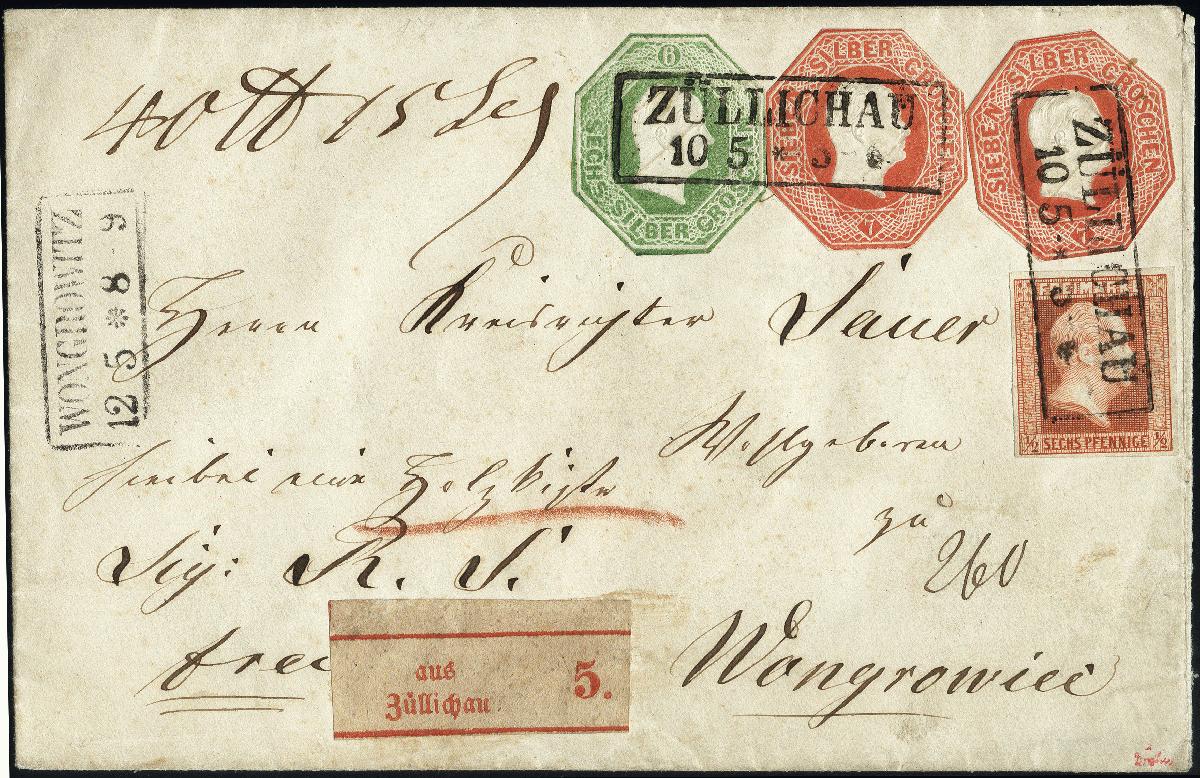 40 15
6
SECHS SILBER GROSCHEN
SIEBEN SILBER GROSCHEN
7
SIEBEN SILBER GROSCHEN
ZÜLLICHAU
10 5 * 5-6
ZÜLLICHAU
10 5 * 5 *
WONGROWITZ
12 5 * 8-9
Herrn Kreisrichter Sauer
Wohlgeboren
hierbei eine Holzkiste
zu
Sig: R. S.
260
FREIMARKE
½ SECHS PFENNIGE ½
aus
Züllichau
5.
Wongrowiec